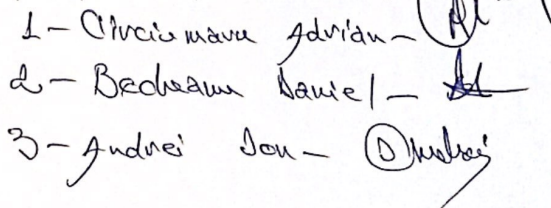 1 - Circiumaru Adrian -
2 - Bedreanu Daniel -
3 - Andrei Ion -